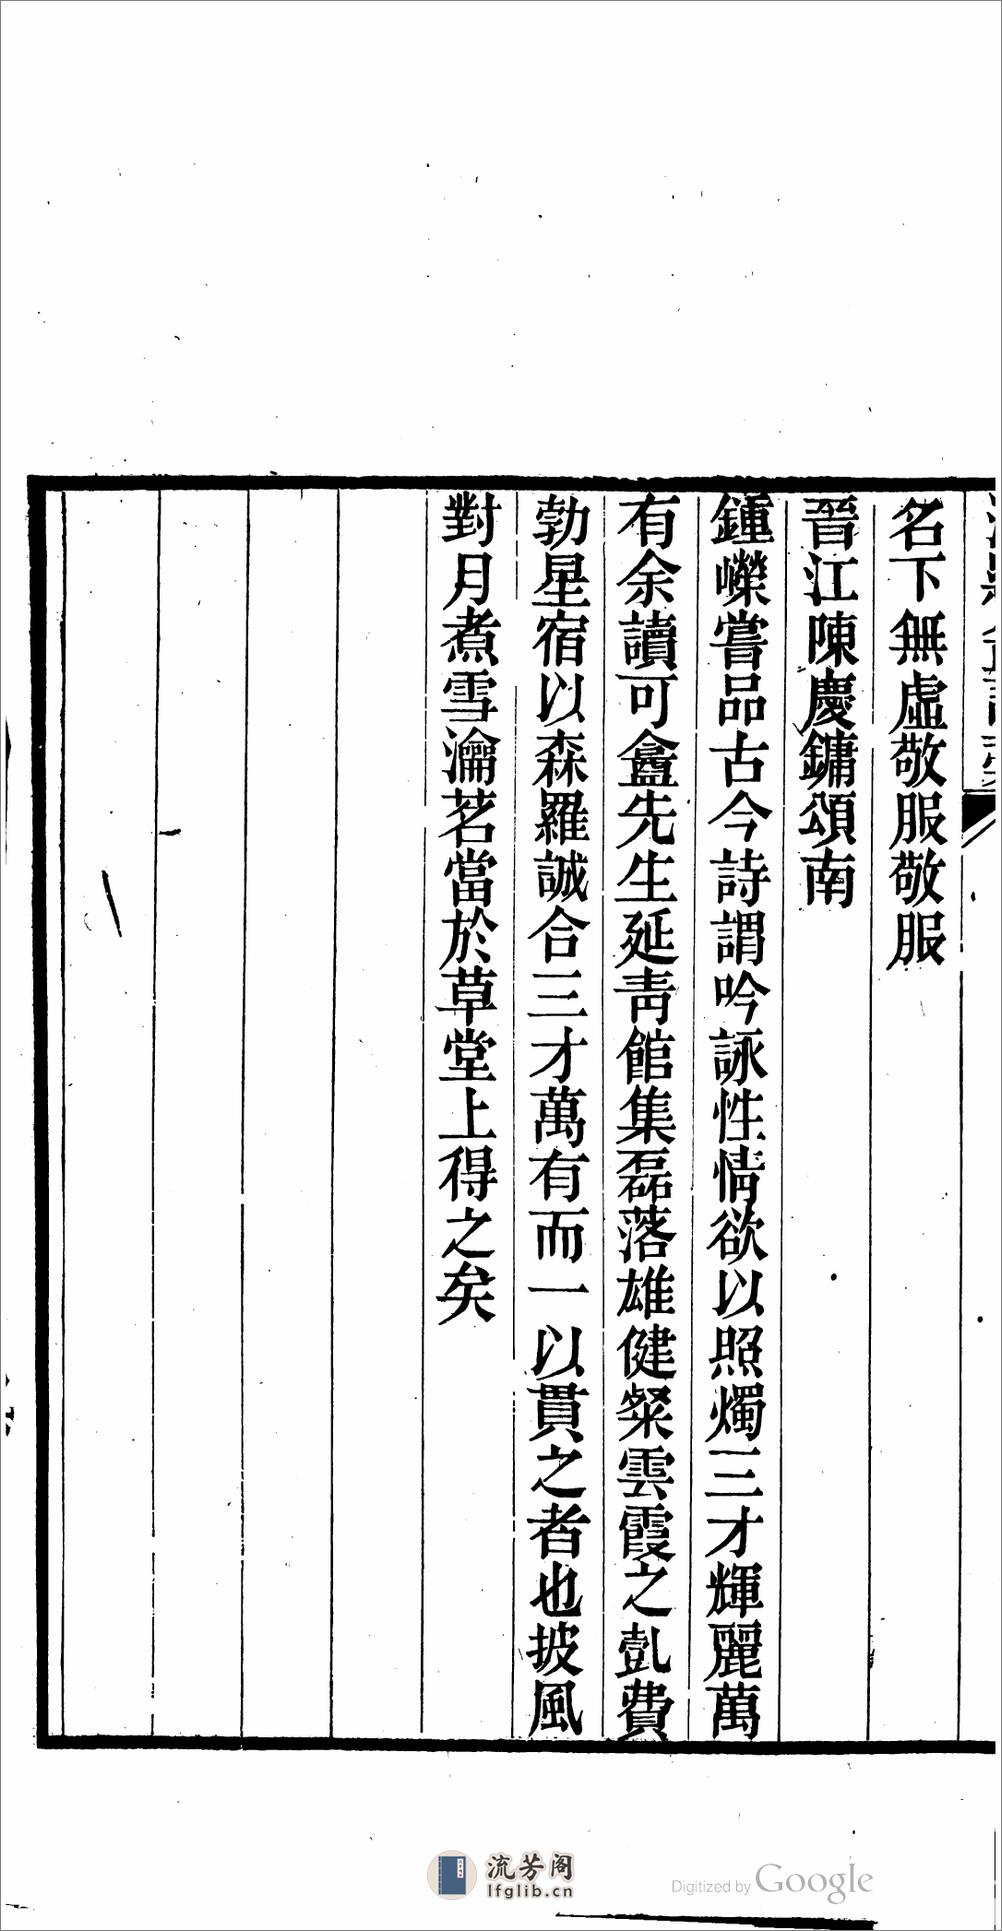 名下無虛敬服敬服
晉江陳慶鏞頌南
鍾嶸嘗品古今詩謂吟詠性情欲以照燭三才輝麗萬
有余讀可盦先生延青館集磊落雄健粲雲霞之
勃星宿以森羅誠合三才萬有而一以貫之者也披風
對月煮雪瀹茗當於草堂上得之矣
流芳阁
lfglib.cn
Digitized by Google